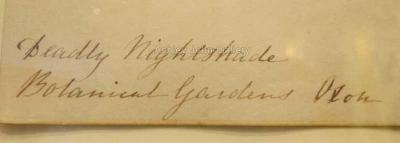 Deadly Nightshade
Botanical Gardens Oxon